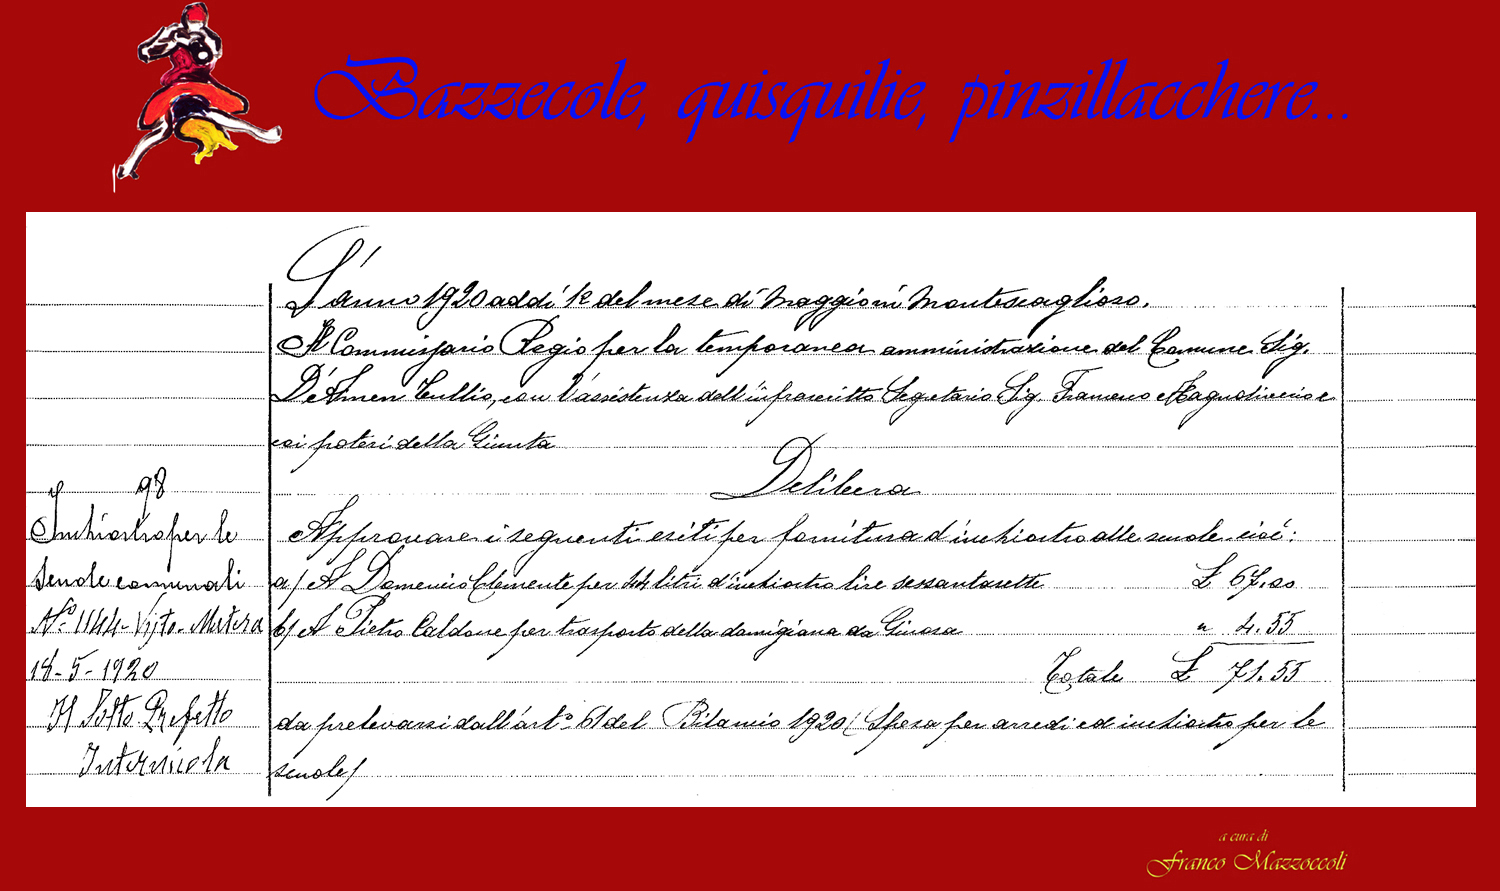 Bazzecole, quisquilie, pinzillacchere...
L'anno 1920 addì 12 del mese di Maggio in Montescaglioso.
Il Commissario Regio per la temporanea amministrazione del Comune Sig.
D'Amen Tullio, con l'assistenza dell'infrascritto Segretario Sig. Francesco
coi poteri della Giunta
Delibera
98
Inchiostro per le
scuole comunali
N.º 1144 - Visto - Matera
18-5-1920
Il Sotto Prefetto
Internicola
Approvare i seguenti esiti per fornitura d'inchiostro alle scuole cioè:
a/ A Domenico Clemente per 44 litri d'inchiostro lire sessantasette £ 67.00
b/ A Pietro Caldone per trasporto della damigiana da Ginosa " 4.55
Totale £ 71.55
da prelevarsi dall'art.º 61 del Bilancio 1920 (Spesa per arredi ed inchiostro per le
scuole)
a cura di
Franco Mazzoccoli